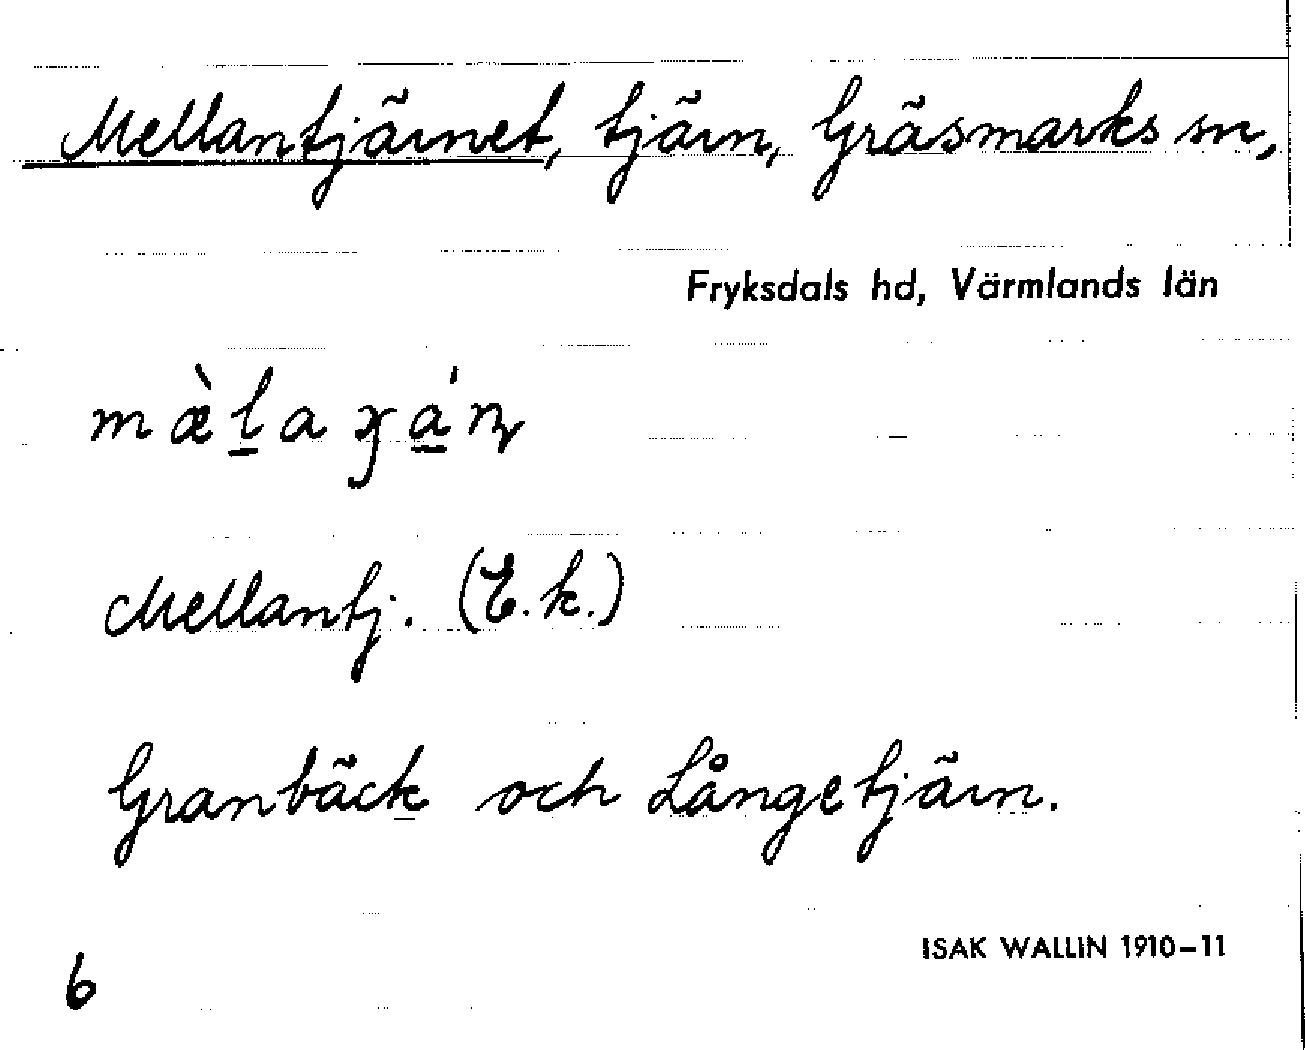 Mellantjärnet, tjärn, Gräsmarks sn,
Fryksdals hd, Värmlands län
mæ̀l̲aɟa̲ń
Mellantj. (E.k.)
Granbäck och Långetjärn.
ISAK WALLIN 1910–11
6